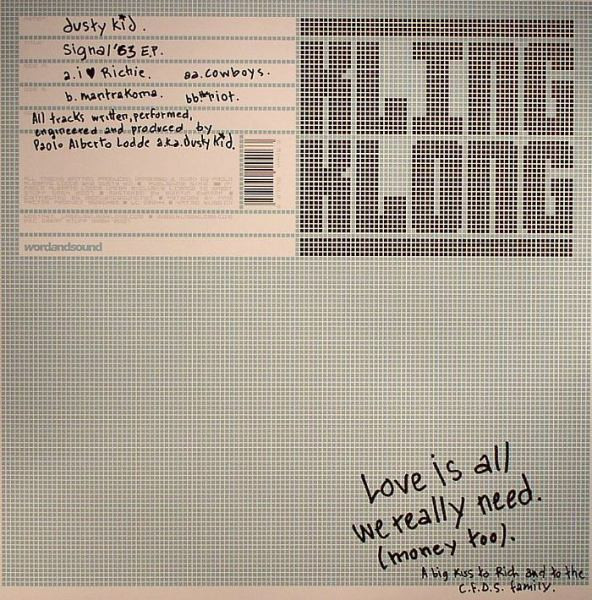 dusty kid.
Signal '63 E.P.
a. i ♥ Richie. aa. cowboys.
b. mantrakoma. bb. the riot.
All tracks written, performed,
engineered and produced by
Paolo Alberto Lodde a.k.a. Dusty Kid.
wordandsound
KLING
KLONG
Love is all
we really need.
(money too).
A big kiss to Rich and to the
C.F.D.S. family.